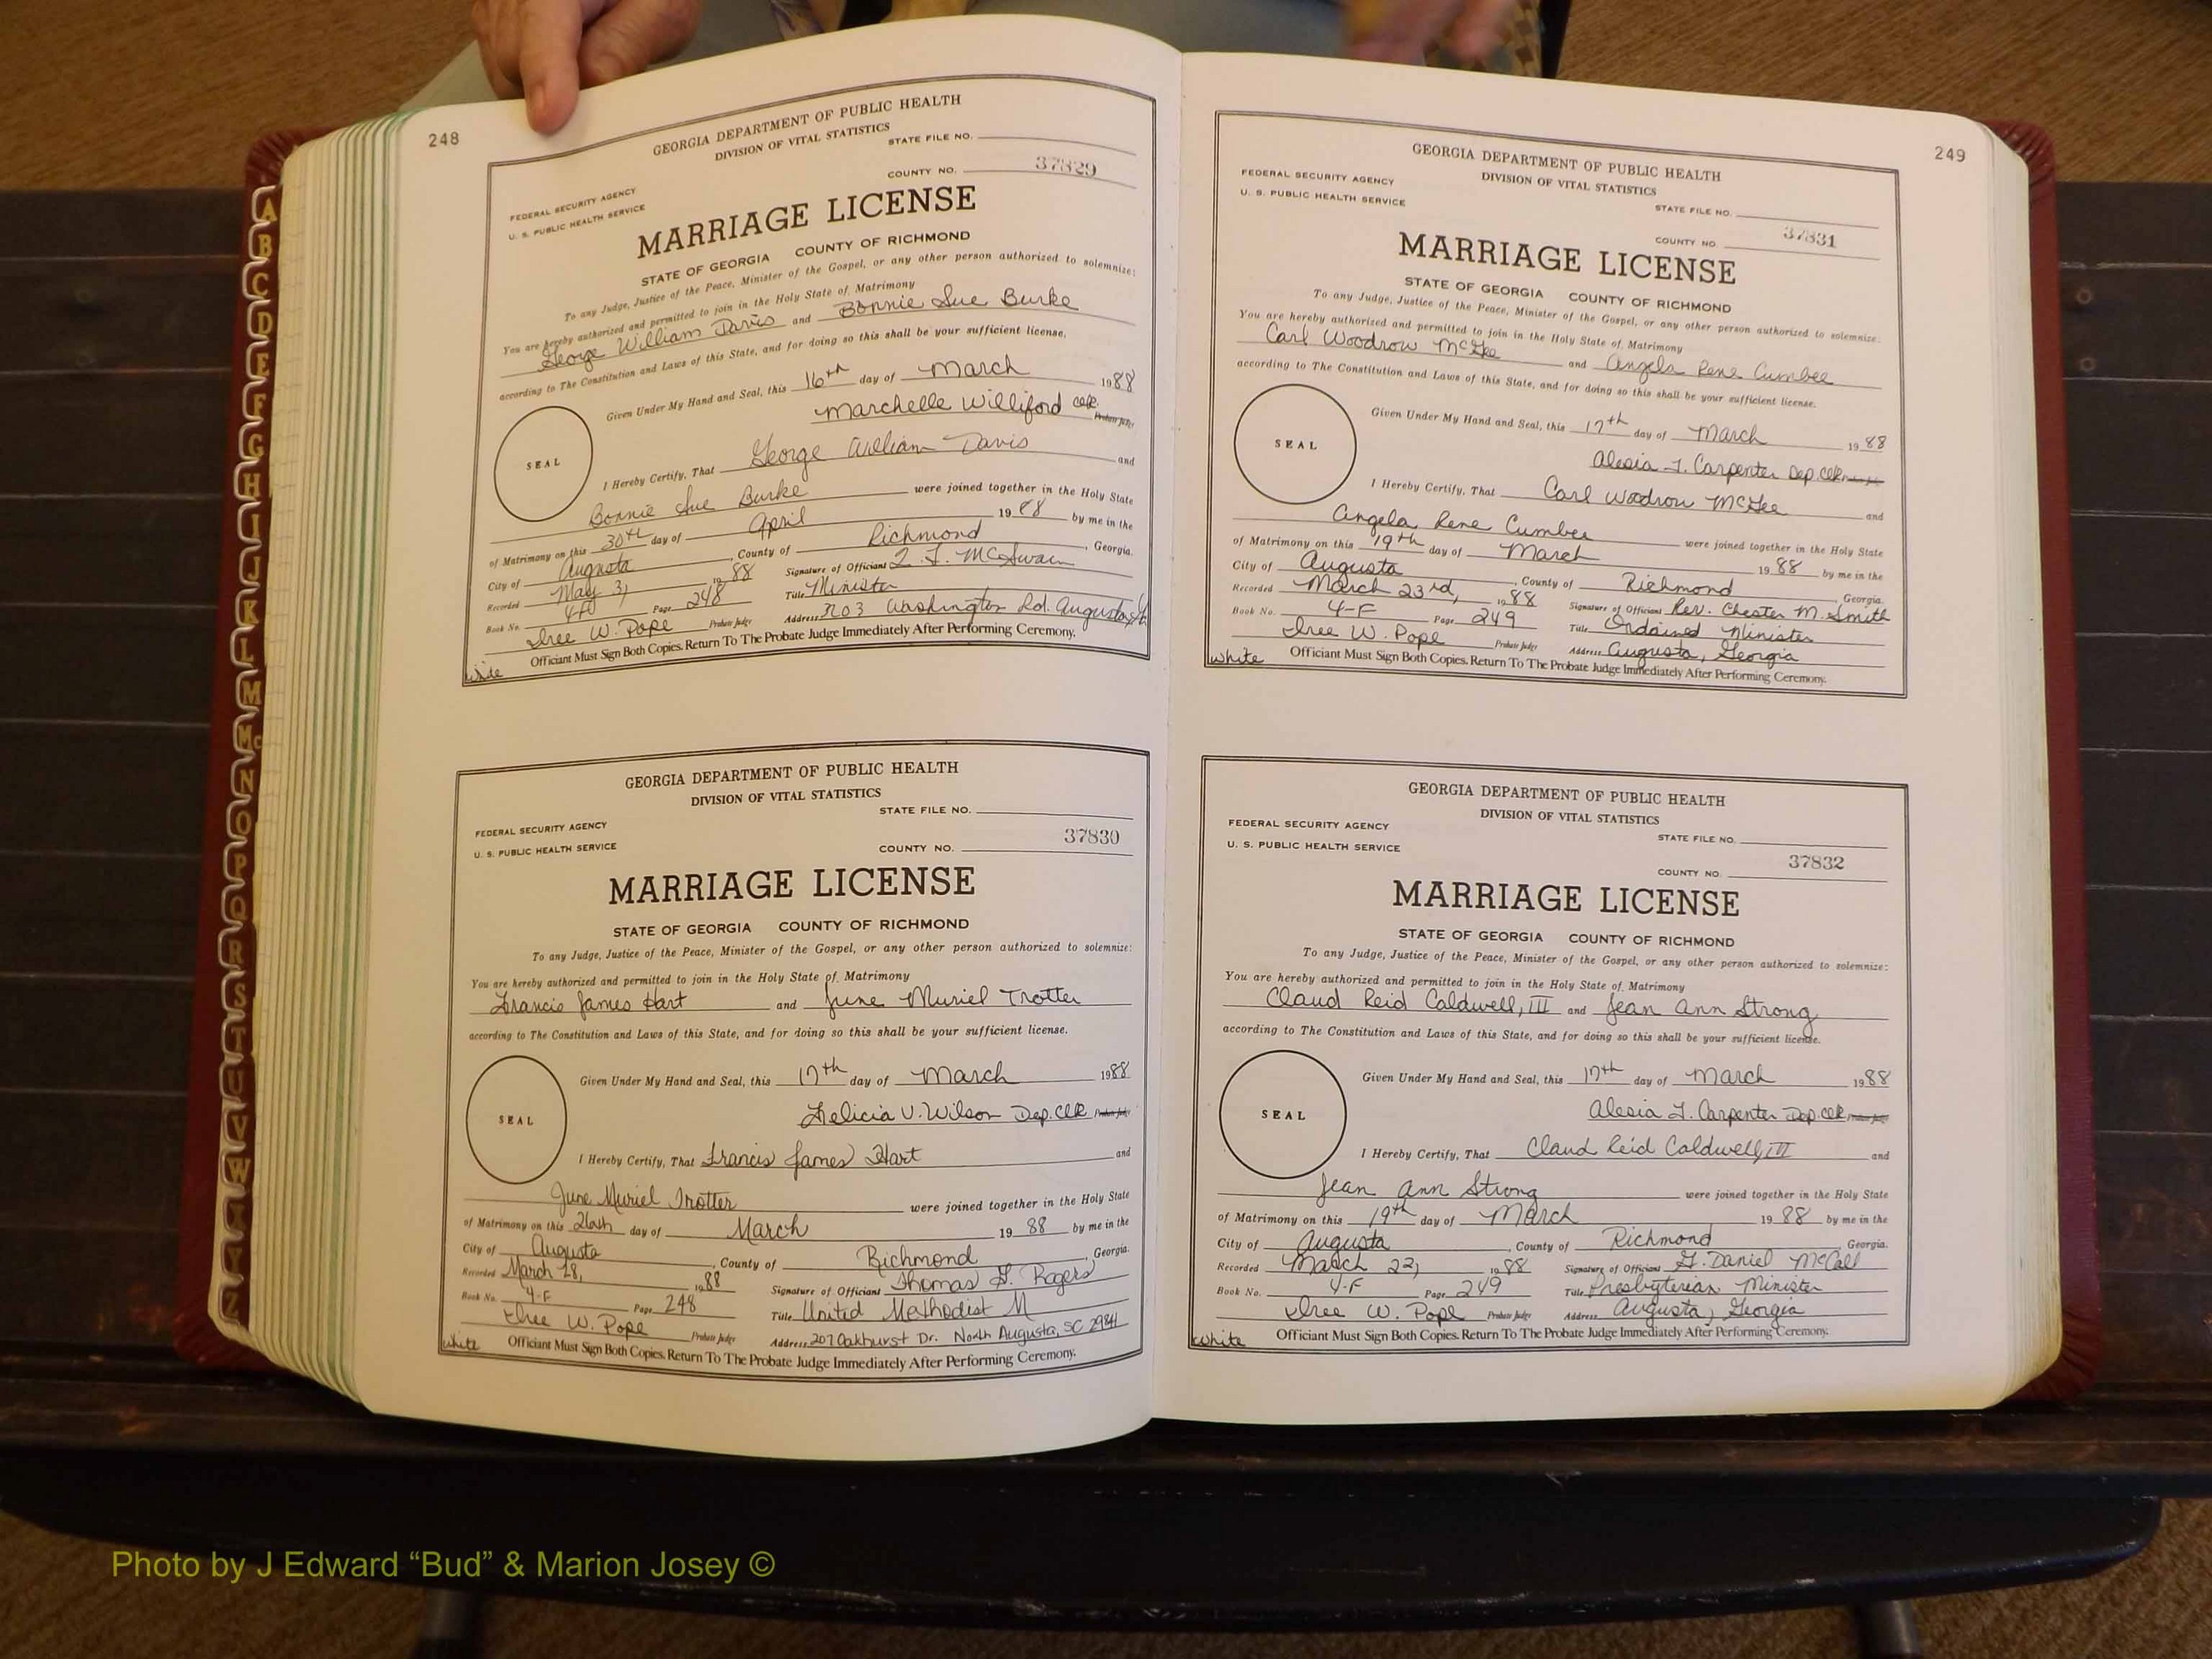 248
GEORGIA DEPARTMENT OF PUBLIC HEALTH
DIVISION OF VITAL STATISTICS
STATE FILE NO.
37829
COUNTY NO.
FEDERAL SECURITY AGENCY
U. S. PUBLIC HEALTH SERVICE
MARRIAGE LICENSE
STATE OF GEORGIA COUNTY OF RICHMOND
To any Judge, Justice of the Peace, Minister of the Gospel, or any other person authorized to solemnize:
You are hereby authorized and permitted to join in the Holy State of Matrimony
George William Davis and Bonnie Sue Burke
according to The Constitution and Laws of this State, and for doing so this shall be your sufficient license.
Given Under My Hand and Seal, this 16th day of March 1988
Marchelle Williford Clk. Probate Judge
SEAL
I Hereby Certify, That George William Davis and
Bonnie Sue Burke were joined together in the Holy State
of Matrimony on this 30th day of April 1988 by me in the
City of Augusta, County of Richmond, Georgia.
Recorded May 3, 1988 Signature of Officiant McSwain
Book No. 4-F Page 248 Title Minister
Iree W. Pope Probate Judge Address 3203 Washington Rd. Augusta, Ga
Officiant Must Sign Both Copies. Return To The Probate Judge Immediately After Performing Ceremony.
GEORGIA DEPARTMENT OF PUBLIC HEALTH
DIVISION OF VITAL STATISTICS
STATE FILE NO.
FEDERAL SECURITY AGENCY
37830
U. S. PUBLIC HEALTH SERVICE
COUNTY NO.
MARRIAGE LICENSE
STATE OF GEORGIA COUNTY OF RICHMOND
To any Judge, Justice of the Peace, Minister of the Gospel, or any other person authorized to solemnize:
You are hereby authorized and permitted to join in the Holy State of Matrimony
Francis James Hart and June Muriel Trotter
according to The Constitution and Laws of this State, and for doing so this shall be your sufficient license.
Given Under My Hand and Seal, this 17th day of March 1988
Felicia V. Wilson Dep. Clk Probate Judge
SEAL
I Hereby Certify, That Francis James Hart and
June Muriel Trotter were joined together in the Holy State
of Matrimony on this 26th day of March 1988 by me in the
City of Augusta, County of Richmond, Georgia.
Recorded March 28, 1988 Signature of Officiant Thomas G. Rogers
Book No. 4-F Page 248 Title United Methodist M
Iree W. Pope Probate Judge Address 207 Oakhurst Dr. North Augusta, SC 29841
white Officiant Must Sign Both Copies. Return To The Probate Judge Immediately After Performing Ceremony.
249
GEORGIA DEPARTMENT OF PUBLIC HEALTH
DIVISION OF VITAL STATISTICS
FEDERAL SECURITY AGENCY
U. S. PUBLIC HEALTH SERVICE
STATE FILE NO.
37831
COUNTY NO.
MARRIAGE LICENSE
STATE OF GEORGIA COUNTY OF RICHMOND
To any Judge, Justice of the Peace, Minister of the Gospel, or any other person authorized to solemnize:
You are hereby authorized and permitted to join in the Holy State of Matrimony
Carl Woodrow McGee and Angela Rene Cumbee
according to The Constitution and Laws of this State, and for doing so this shall be your sufficient license.
Given Under My Hand and Seal, this 17th day of March 1988
Alesia J. Carpenter Dep. Clk Probate Judge
SEAL
I Hereby Certify, That Carl Woodrow McGee and
Angela Rene Cumbee were joined together in the Holy State
of Matrimony on this 19th day of March 1988 by me in the
City of Augusta, County of Richmond, Georgia.
Recorded March 23rd, 1988 Signature of Officiant Rev. Chester M. Smith
Book No. 4-F Page 249 Title Ordained Minister
Iree W. Pope Probate Judge Address Augusta, Georgia
white Officiant Must Sign Both Copies. Return To The Probate Judge Immediately After Performing Ceremony.
GEORGIA DEPARTMENT OF PUBLIC HEALTH
DIVISION OF VITAL STATISTICS
FEDERAL SECURITY AGENCY
STATE FILE NO.
U. S. PUBLIC HEALTH SERVICE
37832
COUNTY NO.
MARRIAGE LICENSE
STATE OF GEORGIA COUNTY OF RICHMOND
To any Judge, Justice of the Peace, Minister of the Gospel, or any other person authorized to solemnize:
You are hereby authorized and permitted to join in the Holy State of Matrimony
Claud Reid Caldwell, III and Jean Ann Strong
according to The Constitution and Laws of this State, and for doing so this shall be your sufficient license.
Given Under My Hand and Seal, this 17th day of March 1988
Alesia J. Carpenter Dep. Clk Probate Judge
SEAL
I Hereby Certify, That Claud Reid Caldwell, III and
Jean Ann Strong were joined together in the Holy State
of Matrimony on this 19th day of March 1988 by me in the
City of Augusta, County of Richmond, Georgia.
Recorded March 22, 1988 Signature of Officiant G. Daniel McCall
Book No. 4-F Page 249 Title Presbyterian Minister
Iree W. Pope Probate Judge Address Augusta, Georgia
white Officiant Must Sign Both Copies. Return To The Probate Judge Immediately After Performing Ceremony.
A
B
C
D
E
F
G
H
I
J
K
L
M
Mc
N
O
P
Q
R
S
T
U
V
W
X
Y
Z
Photo by J Edward “Bud” & Marion Josey ©